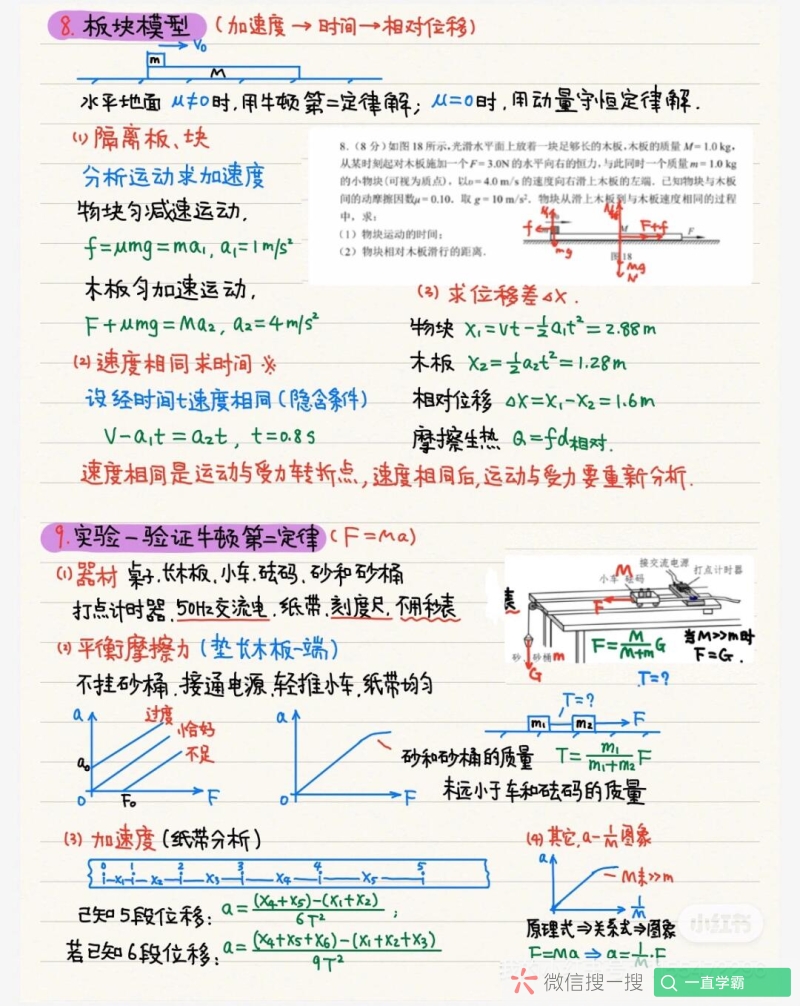 8. 板块模型 (加速度→时间→相对位移)
m V₀
M
水平地面 μ≠0时,用牛顿第二定律解; μ=0时,用动量守恒定律解.
(1) 隔离板、块
分析运动求加速度
物块匀减速运动,
f=μmg=ma₁, a₁=1m/s²
木板匀加速运动,
F+μmg=Ma₂, a₂=4m/s²
(2) 速度相同求时间 ※
设经时间t速度相同(隐含条件)
V-a₁t=a₂t, t=0.8s
8.(8分)如图18所示,光滑水平面上放着一块足够长的木板,木板的质量M=1.0kg,
从某时刻起对木板施加一个F=3.0N的水平向右的恒力,与此同时一个质量m=1.0kg
的小物块(可视为质点),以v=4.0m/s的速度向右滑上木板的左端.已知物块与木板
间的动摩擦因数μ=0.10.取g=10m/s².物块从滑上木板到与木板速度相同的过程
中,求:
(1)物块运动的时间;
(2)物块相对木板滑行的距离.
N
f
mg
N
M F+f F
图18
Mg
N
(3) 求位移差△X.
物块 X₁=Vt-½a₁t²=2.88m
木板 X₂=½a₂t²=1.28m
相对位移 △X=X₁-X₂=1.6m
摩擦生热 Q=fd相对.
速度相同是运动与受力转折点,速度相同后,运动与受力要重新分析.
9.实验-验证牛顿第二定律(F=Ma)
(1)器材 桌子.长木板.小车.砝码.砂和砂桶
打点计时器.50Hz交流电.纸带.刻度尺.不用秒表
表
M 接交流电源
小车 砝码 打点计时器
F
砂 砂桶m
G
F=M/(M+m)G 当M>>m时
F=G.
T=?
(2) 平衡摩擦力(垫长木板一端)
不挂砂桶.接通电源.轻推小车.纸带均匀
a 过度
恰好
不足
a₀
0 F₀ F
a
0 F
砂和砂桶的质量
未远小于车和砝码的质量
T=?
m₁ m₂ F
T=m₁/(m₁+m₂)F
(3) 加速度(纸带分析)
0 1 2 3 4 5
X₁ X₂ X₃ X₄ X₅
已知5段位移: a=((X₄+X₅)-(X₁+X₂))/6T²;
若已知6段位移: a=((X₄+X₅+X₆)-(X₁+X₂+X₃))/9T²
(4) 其它,a-1/M图象
a
M未>>m
1/M
原理式⇒关系式⇒图象
F=Ma ⇒ a=1/M·F
小红书
微信搜一搜 一直学霸